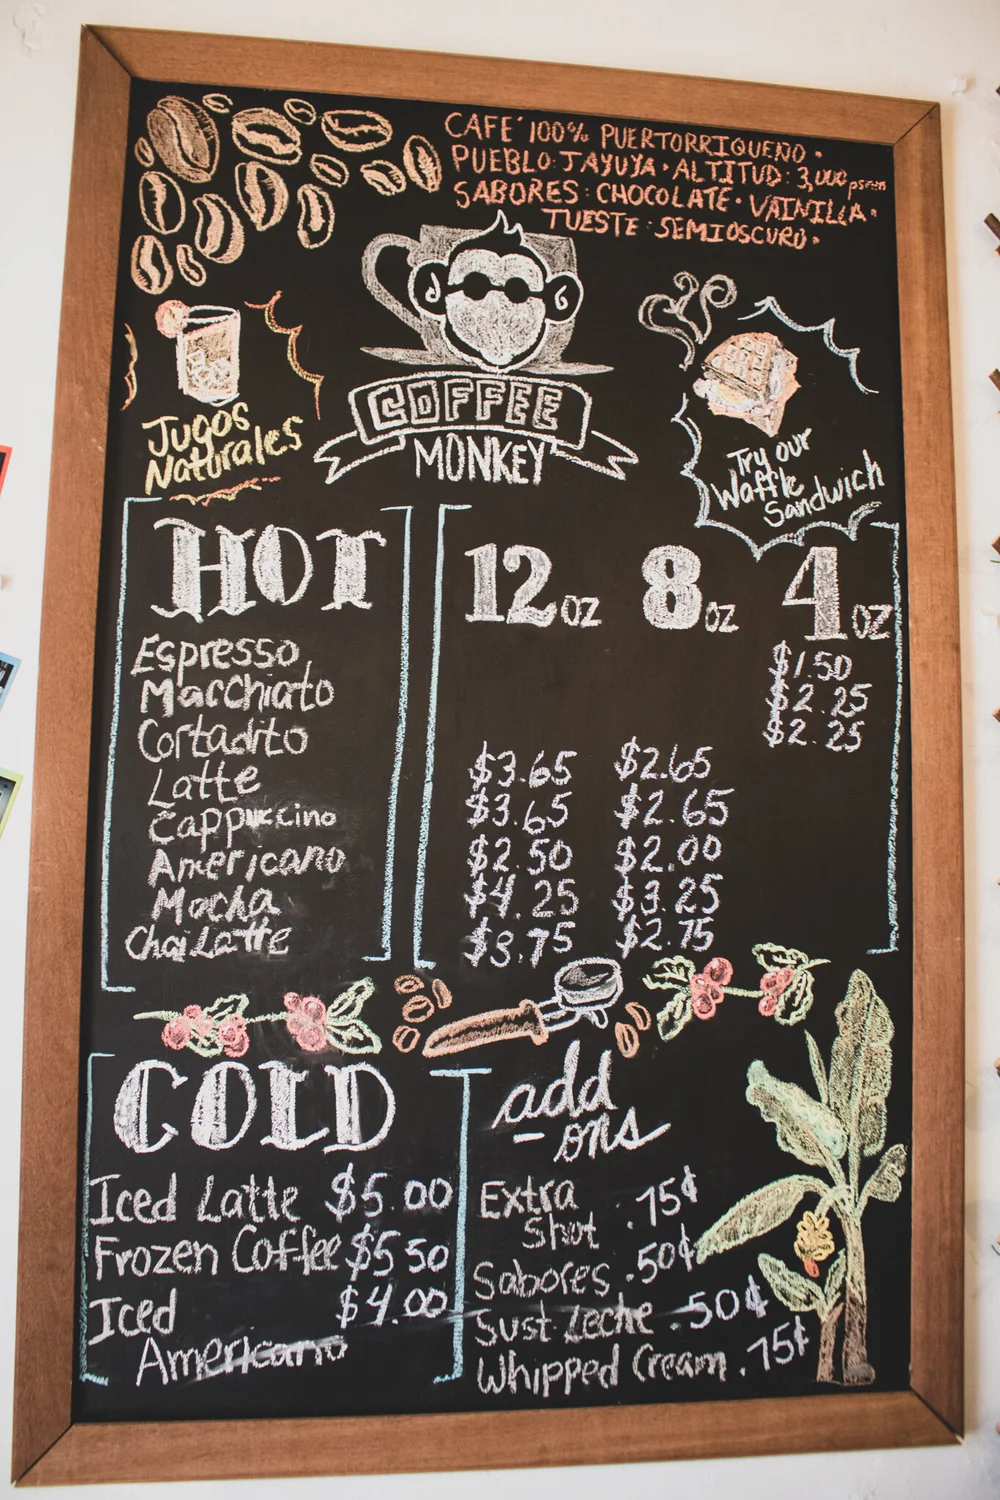 CAFE´ 100% PUERTORRIQUEÑO •
PUEBLO: JAYUYA • ALTITUD: 3,000 psnm
SABORES: CHOCOLATE • VAINILLA •
TUESTE: SEMIOSCURO •
COFFEE
MONKEY
Jugos
Naturales
Try our
Waffle
Sandwich
HOT 12oz 8oz 4oz
Espresso $1.50
Macchiato $2.25
Cortadito $2.25
Latte $3.65 $2.65
Cappuccino $3.65 $2.65
Americano $2.50 $2.00
Mocha $4.25 $3.25
Chai Latte $3.75 $2.75
COLD
Iced Latte $5.00
Frozen Coffee $5.50
Iced $4.00
Americano
add
-ons
Extra .75¢
Shot
Sabores .50¢
Sust. Leche .50¢
Whipped Cream .75¢